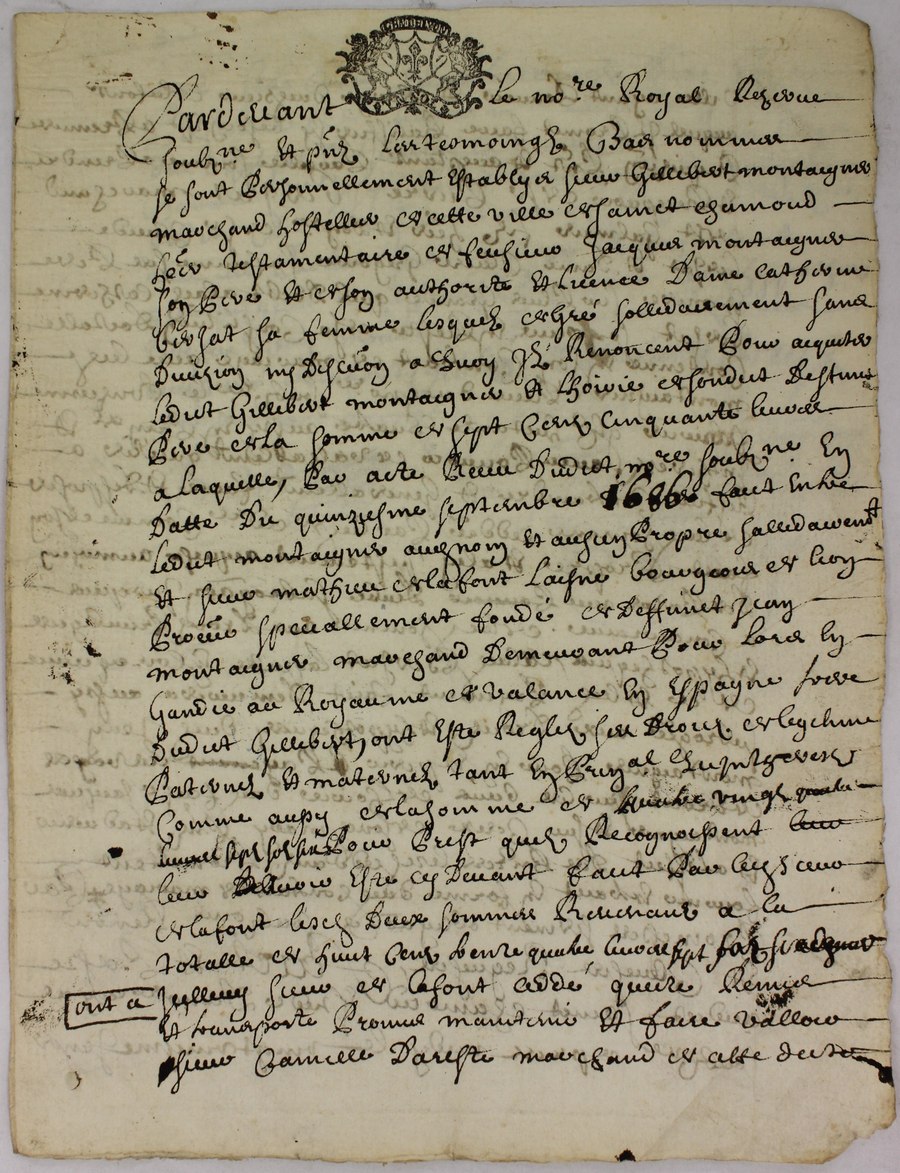 GEN DE LYON
Pardevant le no.re Royal Rezerve
soubz.ne et pñz les tesmoingz Bas nommes
se sont Personnellement Establyes sieur Gillibert montaignier
marchand hostellier de cette ville de sainct chamond
her testamentaire de feu sieur Jacques montaignier
son Pere et de son authorite et licence Dame Catherine
sa femme lesquelz de gré sollidairement sans
Division ny Discũon a quoy Ilz Renoncent Pour acquiter
ledict Gillibert montaignier et lhoirie de sondict Deffunct
Pere de la somme de sept Cens Cinquante livres
a laquelle, Par acte Receu Dudict no.re soubz.ne En
Datte Du quinziesme septembre 1686 faict Entre
ledict montaignier au nom et Propre sollidairem.t
et sieur mathieu de lafont laisne bourgeois de lion
Procũr speciallement fondé de Deffunct Jean
montaignier marchand Demeurant Pour lors En
Gandie au Royaume de Valance En Espagne frere
Dudict Gillibert, ont Este Reglez ses Droicz de legitime
Paternelz et maternelz tant En Prin.al qu'interestz
Comme aussy de la somme de quatre vingt quatre
livres sept solz six Pour Prest quilz Recognoissent
leur avoir Este cy Devant faict Par ledict sieur
de lafont lesd. Deux sommes Revenans a la
totalle de huict Cens trente quatre livres sept solz six
ont a Icelluy sieur de lafont ceddé quitte Remis
et transporté Promis maintenir et faire valloir
sieur Camille Dareste marchand de cette dicte